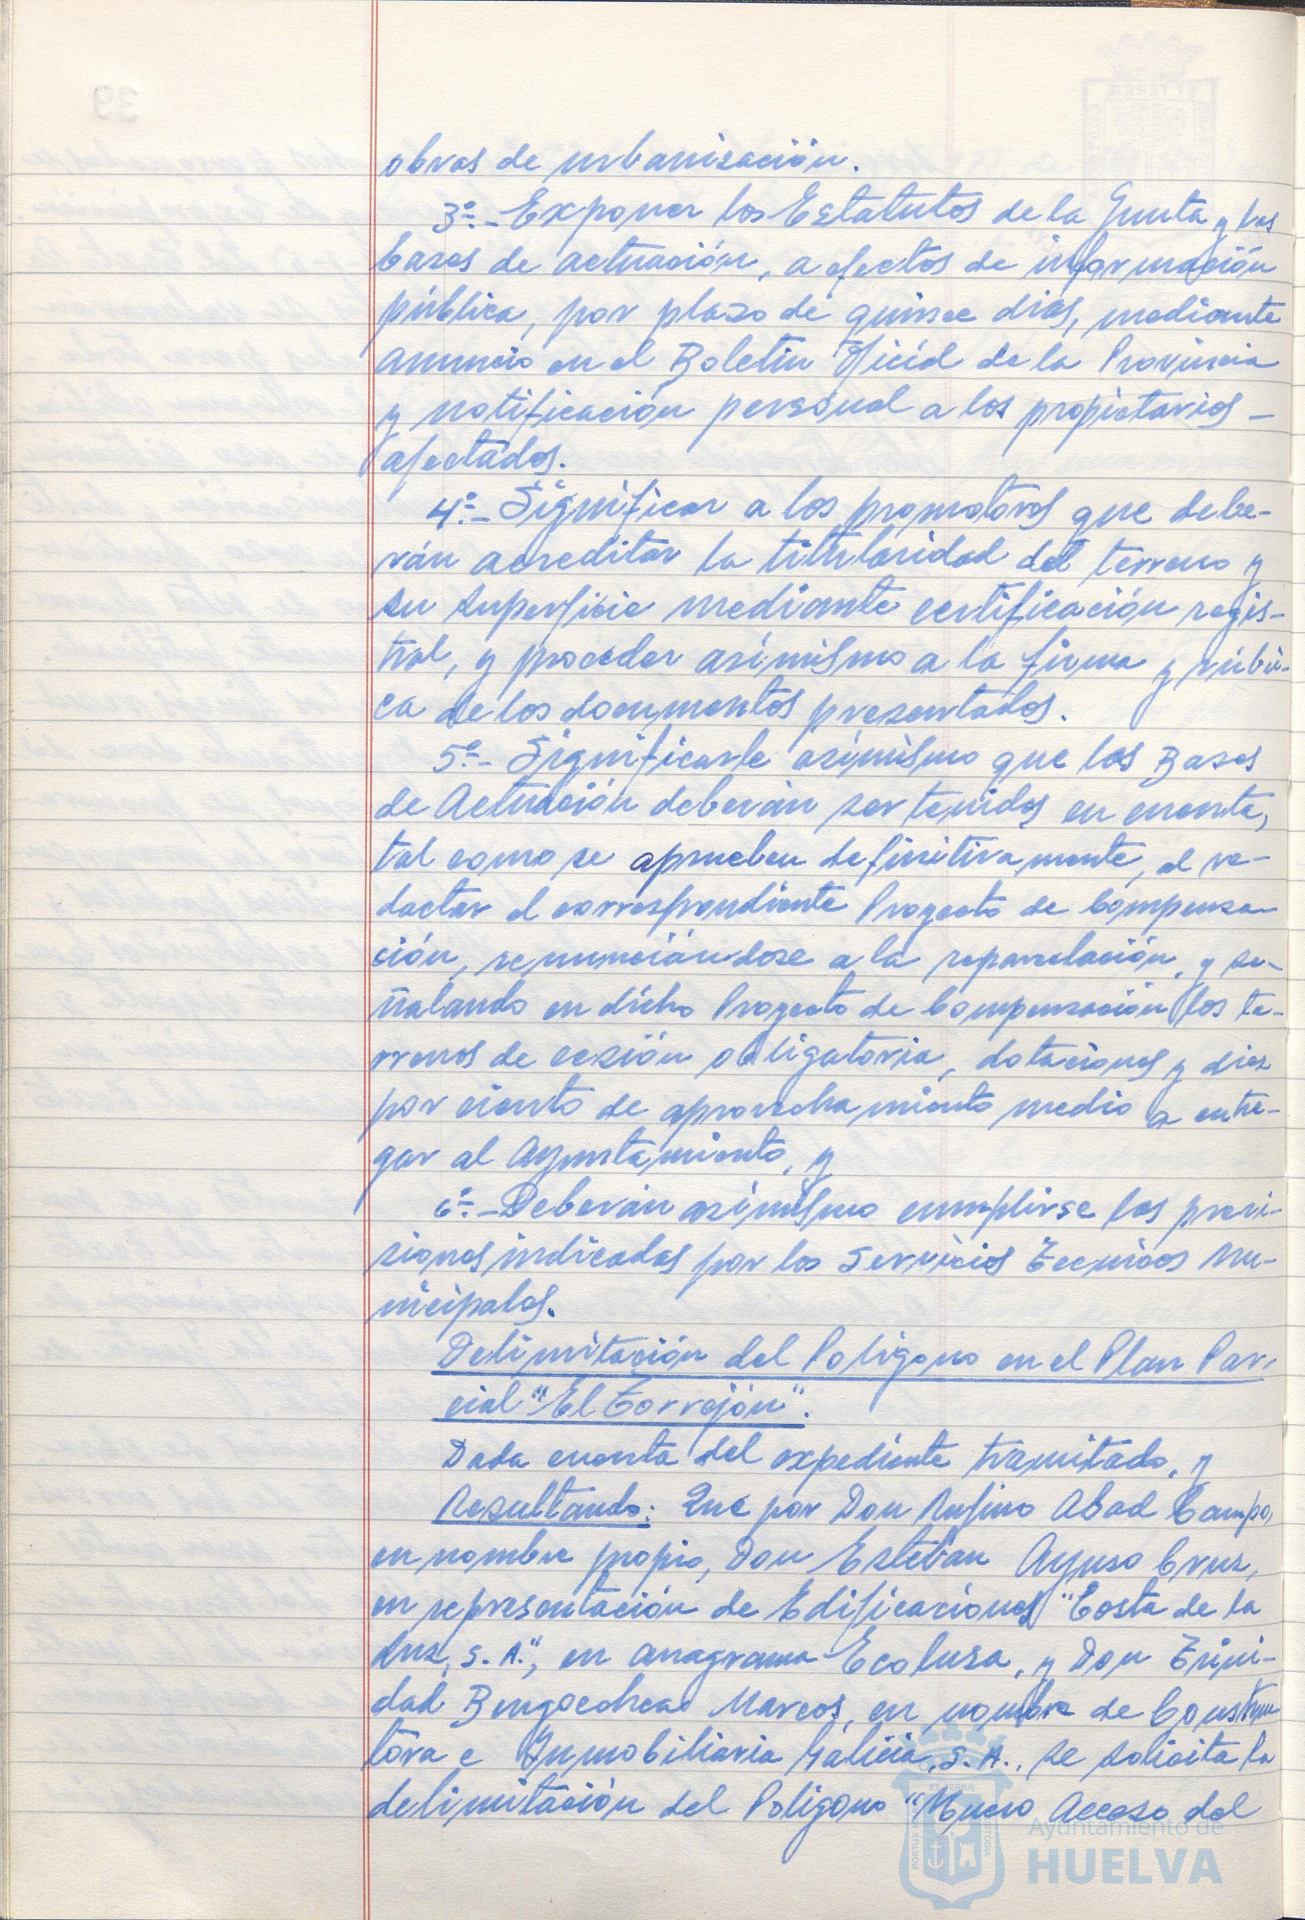 obras de urbanización.
3º.- Exponer los Estatutos de la Junta y las
bases de actuación, a efectos de información
pública, por plazo de quince días, mediante
anuncio en el Boletín Oficial de la Provincia
y notificación personal a los propietarios -
afectados.
4º.- Significar a los promotores que debe-
rán acreditar la titularidad del terreno y
su superficie mediante certificación regis-
tral, y proceder asímismo a la firma y rúbri-
ca de los documentos presentados.
5º.- Significarle asímismo que las Bases
de Actuación deberán ser tenidas en cuenta,
tal como se aprueben definitivamente, al re-
dactar el correspondiente Proyecto de Compensa-
ción, renunciándose a la reparcelación, y se-
ñalando en dicho Proyecto de Compensación los te-
rrenos de cesión obligatoria, dotaciones y diez
por ciento de aprovechamiento medio a entre-
gar al Ayuntamiento, y
6º.- Deberán asímismo cumplirse las previ-
siones indicadas por los Servicios Técnicos Mu-
nicipales.
Delimitación del Polígono en el Plan Par-
cial "El Torrejón".
Dada cuenta del expediente tramitado, y
Resultando: Que por Don Rufino Abad Campo,
en nombre propio, Don Esteban Ayuso Cruz,
en representación de Edificaciones "Costa de la
Luz, S.A.", en anagrama Ecolusa, y Don Trini-
dad Bengoechea Marcos, en nombre de Construc
tora e Inmobiliaria Galicia, S.A., se solicita la
delimitación del Polígono "Nuevo Acceso del
39
Ayuntamiento de
HUELVA